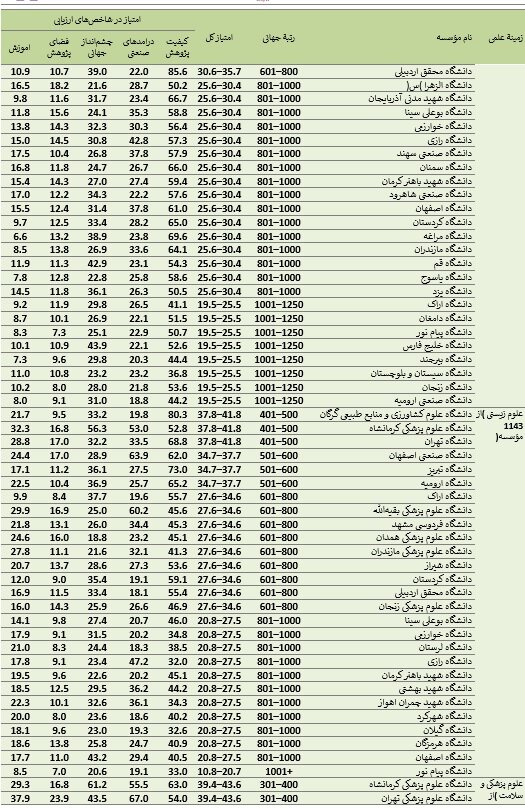 زمینهٔ علمی نام مؤسسه رتبهٔ جهانی امتیاز کل امتیاز در شاخص‌های ارزیابی
کیفیت پژوهش درآمدهای صنعتی چشم‌انداز جهانی فضای پژوهش آموزش
دانشگاه محقق اردبیلی 601–800 30.6–35.7 85.6 22.0 39.0 10.7 10.9
دانشگاه الزهرا )س( 801–1000 25.6–30.4 50.2 28.7 21.6 18.2 16.5
دانشگاه شهید مدنی آذربایجان 801–1000 25.6–30.4 66.7 23.4 31.7 11.6 9.8
دانشگاه بوعلی سینا 801–1000 25.6–30.4 58.8 35.3 24.1 15.6 11.8
دانشگاه خوارزمی 801–1000 25.6–30.4 56.4 30.3 32.3 14.3 13.8
دانشگاه رازی 801–1000 25.6–30.4 57.3 42.8 30.8 14.5 15.0
دانشگاه صنعتی سهند 801–1000 25.6–30.4 57.9 37.8 26.8 10.4 17.5
دانشگاه سمنان 801–1000 25.6–30.4 66.0 26.7 24.7 11.8 16.8
دانشگاه شهید باهنر کرمان 801–1000 25.6–30.4 59.4 27.4 27.0 14.3 15.4
دانشگاه صنعتی شاهرود 801–1000 25.6–30.4 57.6 22.2 34.3 12.2 17.0
دانشگاه اصفهان 801–1000 25.6–30.4 61.0 37.8 31.4 12.4 15.5
دانشگاه کردستان 801–1000 25.6–30.4 65.0 28.2 33.4 12.5 9.7
دانشگاه مراغه 801–1000 25.6–30.4 69.6 23.8 38.9 13.2 6.6
دانشگاه مازندران 801–1000 25.6–30.4 64.1 33.6 26.9 13.8 8.5
دانشگاه قم 801–1000 25.6–30.4 54.3 23.1 42.9 11.3 11.9
دانشگاه یاسوج 801–1000 25.6–30.4 58.6 25.8 22.8 12.8 7.8
دانشگاه یزد 801–1000 25.6–30.4 50.5 26.3 36.1 11.8 14.5
دانشگاه اراک 1001–1250 19.5–25.5 41.1 26.5 29.8 11.9 9.2
دانشگاه دامغان 1001–1250 19.5–25.5 51.5 22.1 26.9 10.1 8.7
دانشگاه پیام نور 1001–1250 19.5–25.5 50.7 22.9 25.1 7.3 8.3
دانشگاه خلیج فارس 1001–1250 19.5–25.5 52.6 22.1 43.9 10.9 10.1
دانشگاه بیرجند 1001–1250 19.5–25.5 44.4 20.3 29.8 9.6 7.3
دانشگاه سیستان و بلوچستان 1001–1250 19.5–25.5 36.8 23.2 23.2 10.8 11.0
دانشگاه زنجان 1001–1250 19.5–25.5 53.6 21.8 28.0 8.0 10.2
دانشگاه صنعتی ارومیه 1001–1250 19.5–25.5 44.2 18.8 31.0 9.1 8.0
علوم زیستی )از 1143 مؤسسه( دانشگاه علوم کشاورزی و منابع طبیعی گرگان 401–500 37.8–41.8 80.3 19.8 33.2 9.5 21.7
دانشگاه علوم پزشکی کرمانشاه 401–500 37.8–41.8 52.8 53.0 56.3 16.8 32.3
دانشگاه تهران 401–500 37.8–41.8 68.8 33.5 32.2 17.0 28.8
دانشگاه صنعتی اصفهان 501–600 34.7–37.7 62.0 63.9 28.9 17.0 24.4
دانشگاه تبریز 501–600 34.7–37.7 73.0 27.5 36.1 11.2 17.1
دانشگاه ارومیه 501–600 34.7–37.7 65.2 25.7 36.9 10.4 22.5
دانشگاه اراک 601–800 27.6–34.6 55.7 19.6 37.7 8.4 9.9
دانشگاه علوم پزشکی بقیه‌الله 601–800 27.6–34.6 45.6 60.2 25.0 16.9 29.9
دانشگاه فردوسی مشهد 601–800 27.6–34.6 45.3 34.4 26.0 13.1 21.8
دانشگاه علوم پزشکی همدان 601–800 27.6–34.6 45.1 23.2 18.8 16.0 24.6
دانشگاه علوم پزشکی مازندران 601–800 27.6–34.6 41.3 32.1 21.6 11.1 27.8
دانشگاه شیراز 601–800 27.6–34.6 53.6 27.3 28.6 13.7 20.7
دانشگاه کردستان 601–800 27.6–34.6 59.1 19.1 35.4 9.0 12.0
دانشگاه محقق اردبیلی 601–800 27.6–34.6 55.4 18.1 33.4 11.5 16.9
دانشگاه علوم پزشکی زنجان 601–800 27.6–34.6 46.9 26.6 25.9 14.3 16.0
دانشگاه بوعلی سینا 801–1000 20.8–27.5 46.0 20.7 27.4 9.8 14.1
دانشگاه خوارزمی 801–1000 20.8–27.5 34.8 20.2 31.5 9.1 17.9
دانشگاه لرستان 801–1000 20.8–27.5 38.5 18.3 24.4 8.3 21.0
دانشگاه رازی 801–1000 20.8–27.5 32.0 47.2 23.4 9.1 17.8
دانشگاه شهید باهنر کرمان 801–1000 20.8–27.5 45.1 20.2 22.6 9.6 19.5
دانشگاه شهید بهشتی 801–1000 20.8–27.5 44.2 36.2 29.5 12.5 18.5
دانشگاه شهید چمران اهواز 801–1000 20.8–27.5 34.3 36.1 32.6 10.1 22.3
دانشگاه شهرکرد 801–1000 20.8–27.5 40.2 18.6 23.6 8.0 20.0
دانشگاه گیلان 801–1000 20.8–27.5 32.6 19.3 23.0 9.6 18.1
دانشگاه هرمزگان 801–1000 20.8–27.5 40.9 24.7 25.8 13.8 18.6
دانشگاه اصفهان 801–1000 20.8–27.5 40.5 29.4 43.2 11.0 17.7
دانشگاه پیام نور 1001+ 10.8–20.7 33.0 19.1 20.6 7.0 8.5
علوم پزشکی و سلامت )از دانشگاه علوم پزشکی کرمانشاه 301–400 39.4–43.6 63.0 55.5 61.2 16.8 29.3
دانشگاه علوم پزشکی تهران 301–400 39.4–43.6 54.0 67.0 43.5 23.9 37.9